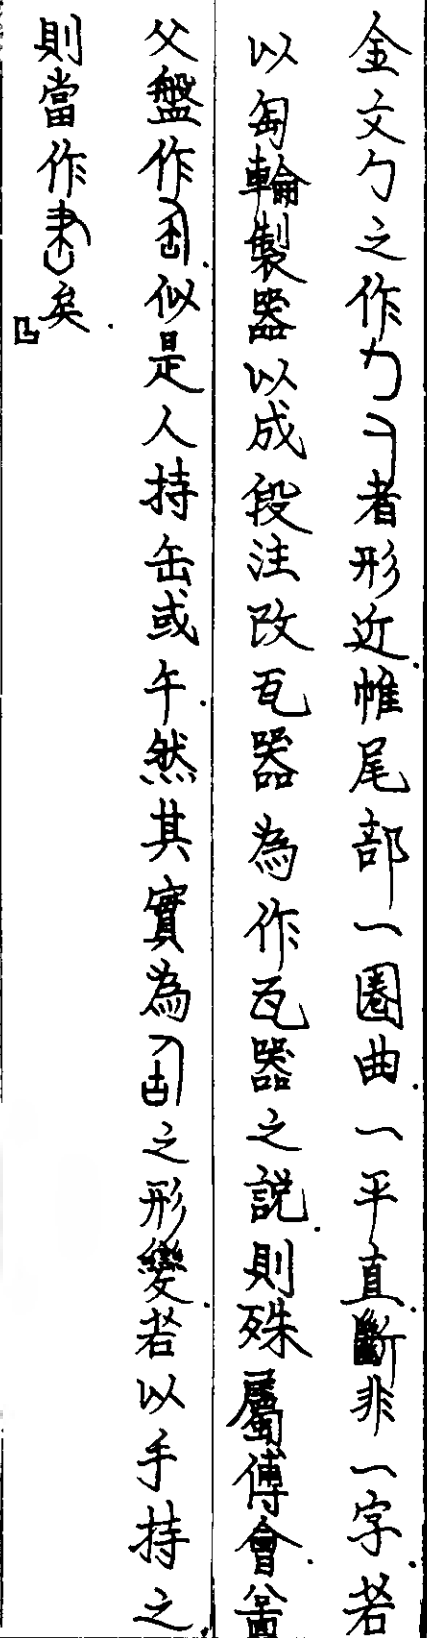 金文勹之作者形近.惟尾部一圈曲.一平直.斷非一字.若
以匋輪製器以成段注改瓦器為作瓦器之說.則殊屬傅會.
父盤作.似是人持缶或午.然其實為之形變.若以手持之.
則當作矣.